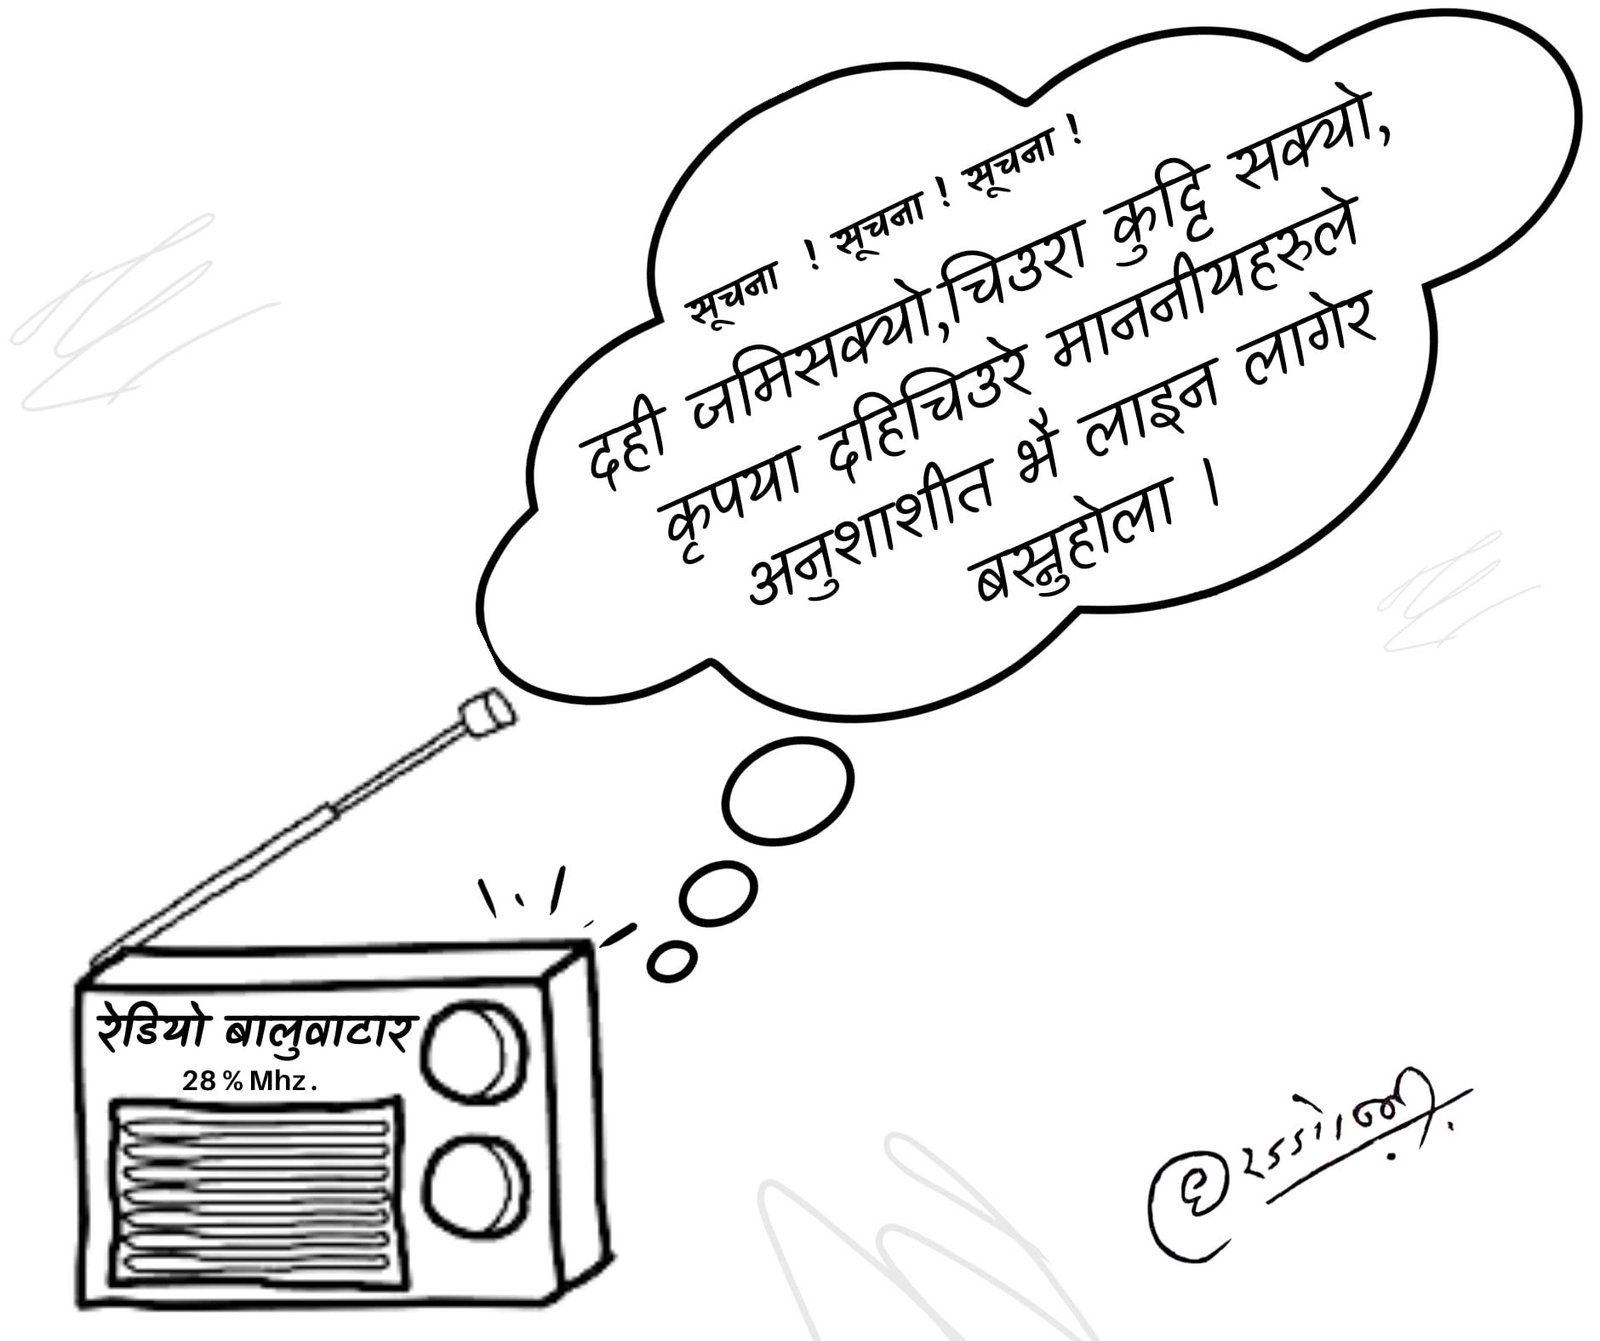 सूचना ! सूचना ! सूचना !
दही जमिसक्यो,चिउरा कुट्टि सक्यो,
कृपया दहिचिउरे माननीयहरुले
अनुशाशीत भै लाइन लागेर
बस्नुहोला ।
रेडियो बालुवाटार
28 % Mhz .